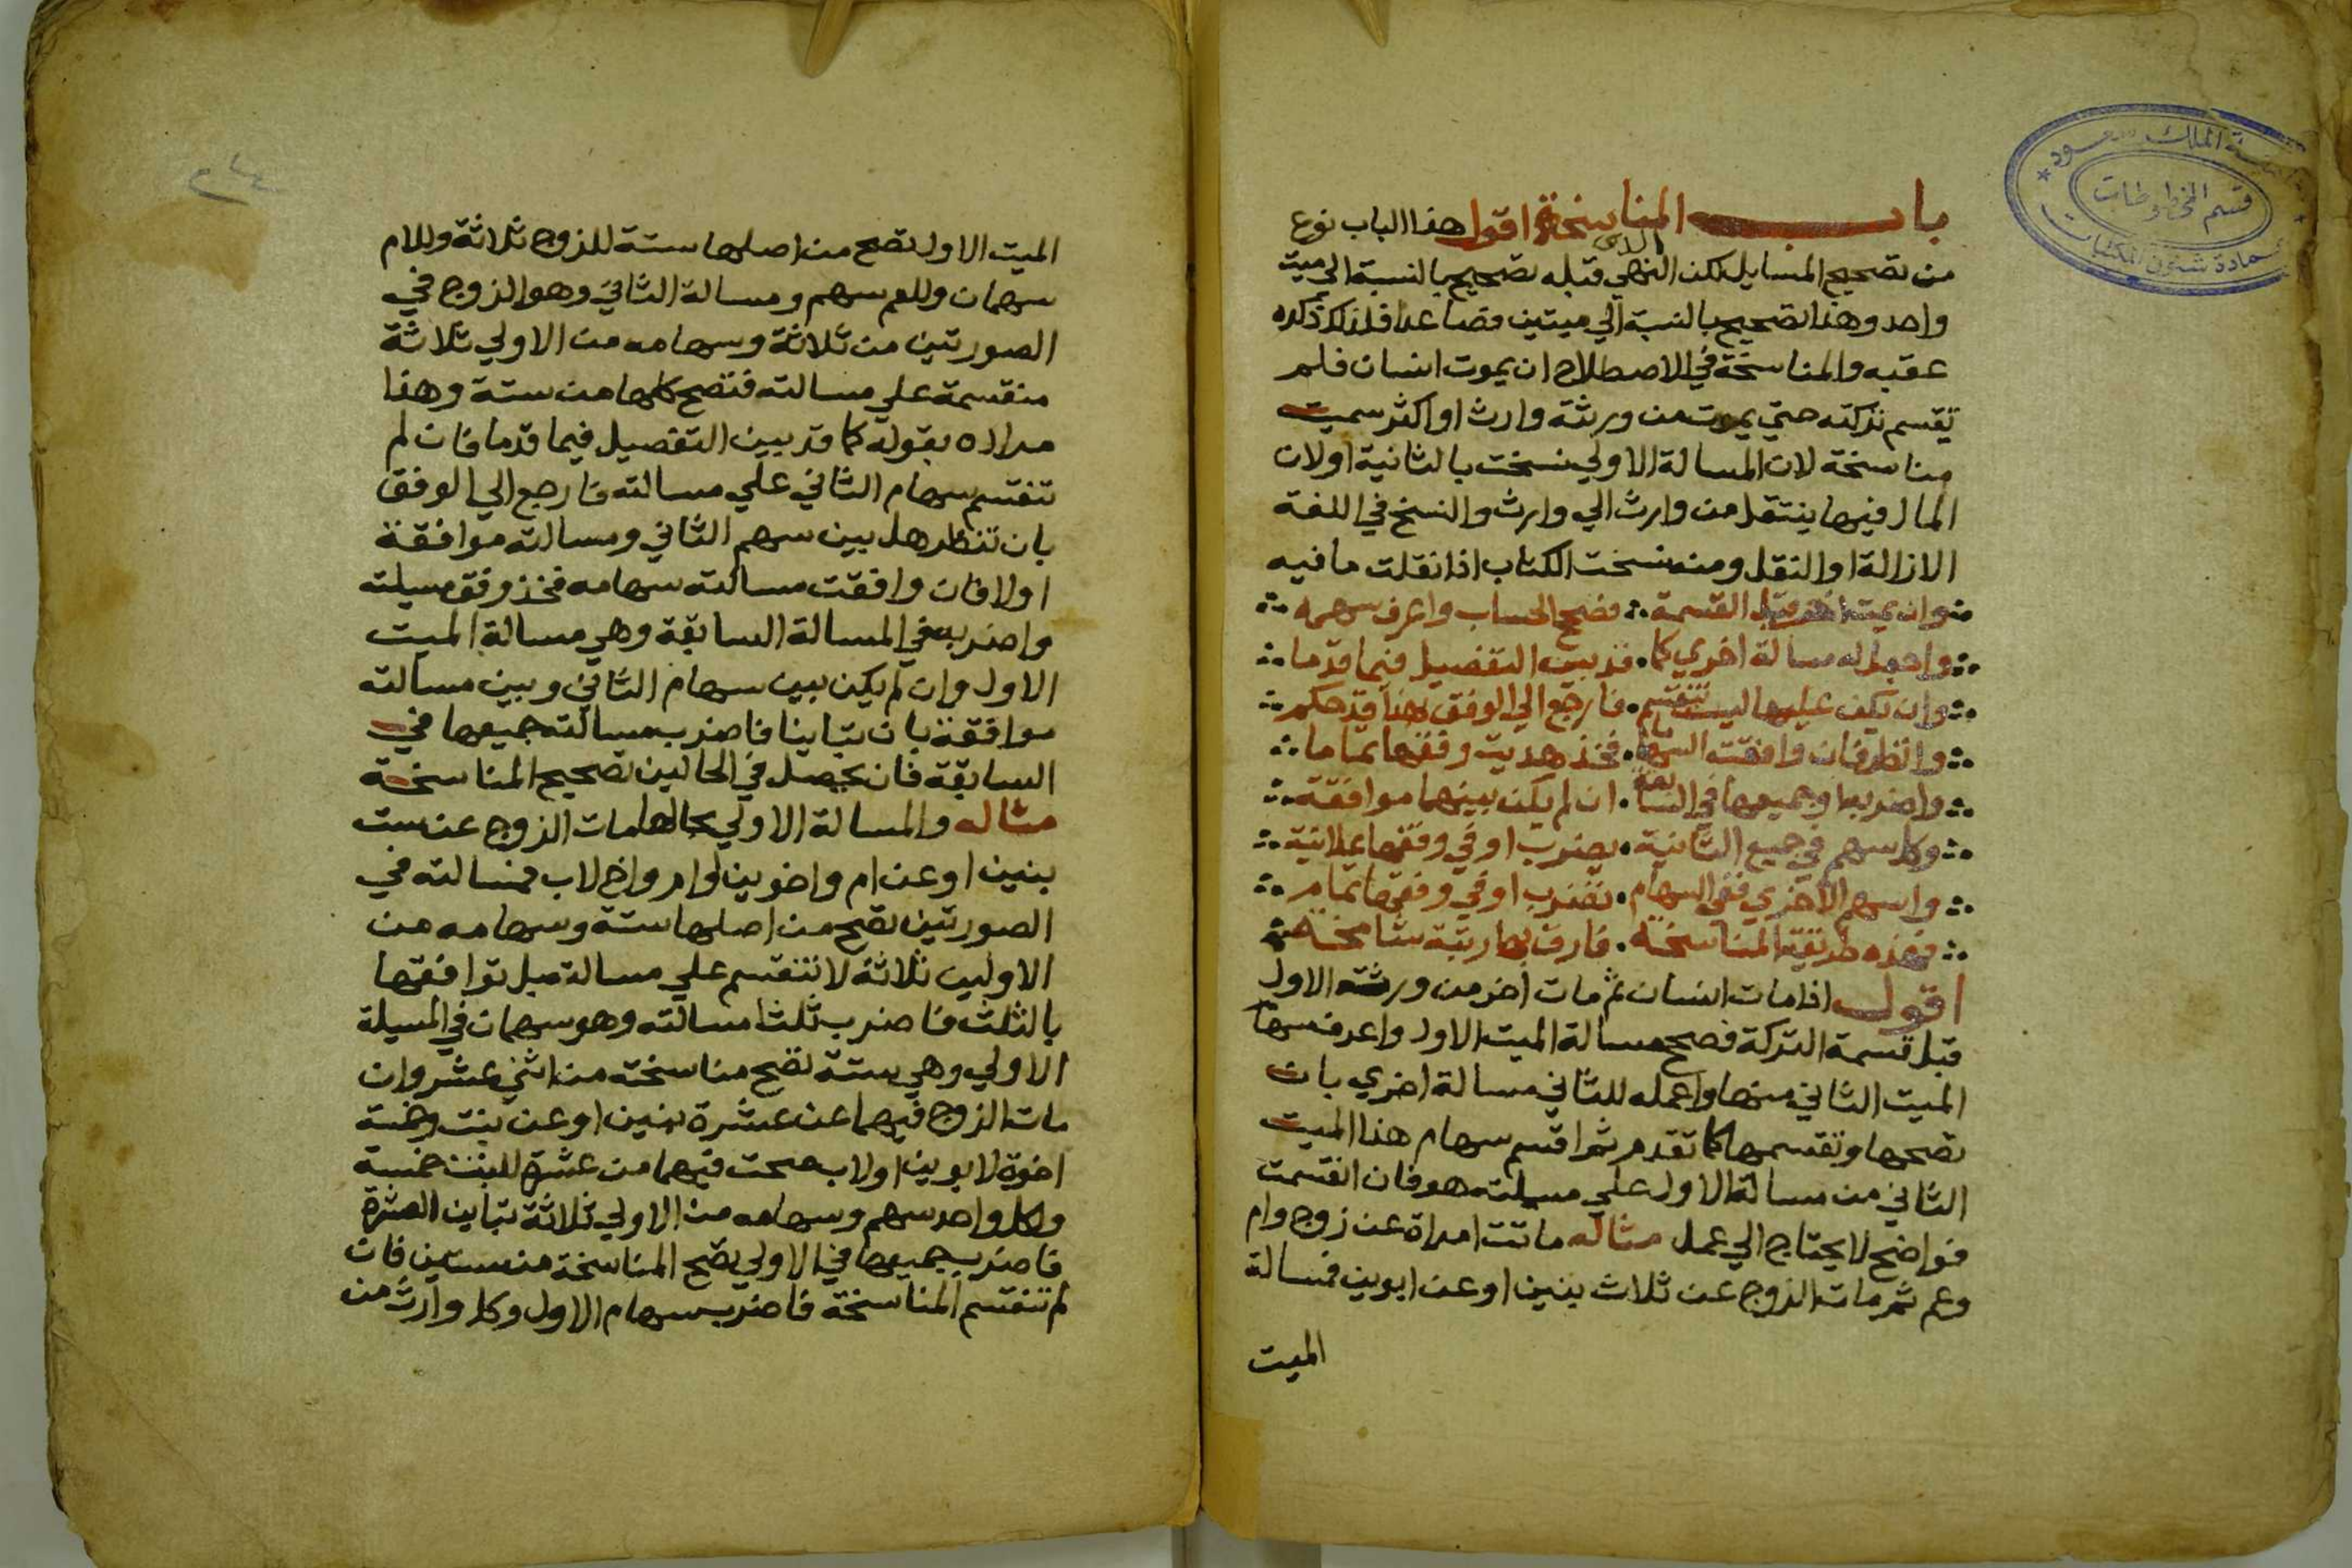 باب المناسخة اقول هذا الباب نوع
من تصحيح المسايل لكن الذي قبله تصحيح بالنسبة الي ميت
واحد وهذا تصحيح بالنسبة الي ميتين فصاعدا فلذلك ذكره
عقبه والمناسخة في الاصطلاح ان يموت انسان فلم
تقسم تركته حتي يموت من ورثته وارث او اكثر سميت
مناسخة لان المسالة الاولي نسخت بالثانية او لان
المال فيها ينتقل من وارث الي وارث والنسخ في اللغة
الازالة او النقل ومنه نسخت الكتاب اذا نقلت ما فيه
وان يمت اخر قبل القسمة فصحح الحساب واعرف سهمه
واجعل له مسالة اخري كما قد بين التفصيل فيما قدما
وان تكن عليها ليست تنقسم فارجع الي الوفق بهذا قد حكم
وانظر فان وافقت السهاما فخذ هديت وفقها تماما
واضربه او جميعها في السابقة ان لم يكن بينهما موافقة
وكل سهم في جميع الثانية يضرب او في وفقها علانية
واسهم الاخري ففي السهام تضرب او في وفقها تمام
فهذه طريقة المناسخة فارق بها رتبة شامخة
اقول اذا مات انسان ثم مات اخر من ورثته الاول
قبل قسمة التركة فصحح مسالة الميت الاول واعرف سهام
الميت الثاني منها واعمله للثاني مسالة اخري بان
تصحها وتقسمها كما تقدم ثم اقسم سهام هذا الميت
الثاني من مسالة الاول علي مسيلته هو فان انقسمت
فواضح لا يحتاج الي عمل مثاله ماتت امراة عن زوج وام
وعم ثم مات الزوج عن ثلاث بنين او عن ابوين فمسالة
الميت
الميت الاول تصح من اصلها ستة للزوج ثلاثة وللام
سهمان وللعم سهم ومسالة الثاني وهو الزوج في
الصورتين من ثلاثة وسهامه من الاولي ثلاثة
منقسمة علي مسالته فتصح كلها من ستة وهذا
مراده بقوله كما قد بين التفصيل فيما قدما فان لم
تنقسم سهام الثاني علي مسالته فارجع الي الوفق
بان تنظر هل بين سهم الثاني ومسالته موافقة
اولا فان وافقت مسالته سهامه فخذ وفق مسيلته
واضربه في المسالة السابقة وهي مسالة الميت
الاول وان لم يكن بين سهام الثاني وبين مسالته
موافقة بان تباينا فاضرب مسالته جميعها في
السابقة فان يحصل في الحالين تصحيح المناسخة
مثاله والمسالة الاولي بحالها مات الزوج عن ست
بنين او عن ام واخوين لام واخ لاب فمسالته في
الصورتين تصح من اصلها ستة وسهامه من
الاوليين ثلاثة لا تنقسم علي مسالته بل توافقها
بالثلث فاضرب ثلث مسالته وهو سهمان في المسيلة
الاولي وهي ستة تصح مناسخته من اثني عشر وان
مات الزوج فيهما عن عشرة بنين او عن بنت وخمسة
اخوة لابوين او لاب صحت فيهما من عشرة للبنت خمسة
ولكل واحد سهم وسهامه من الاولي ثلاثة تباين العشرة
فاضرب جميعها في الاولي تصح المناسخة من ستين فان
لم تنقسم المناسخة فاضرب سهام الاول وكل وارث من
قسم المخطوطات
جامعة الملك سعود
عمادة شئون المكتبات